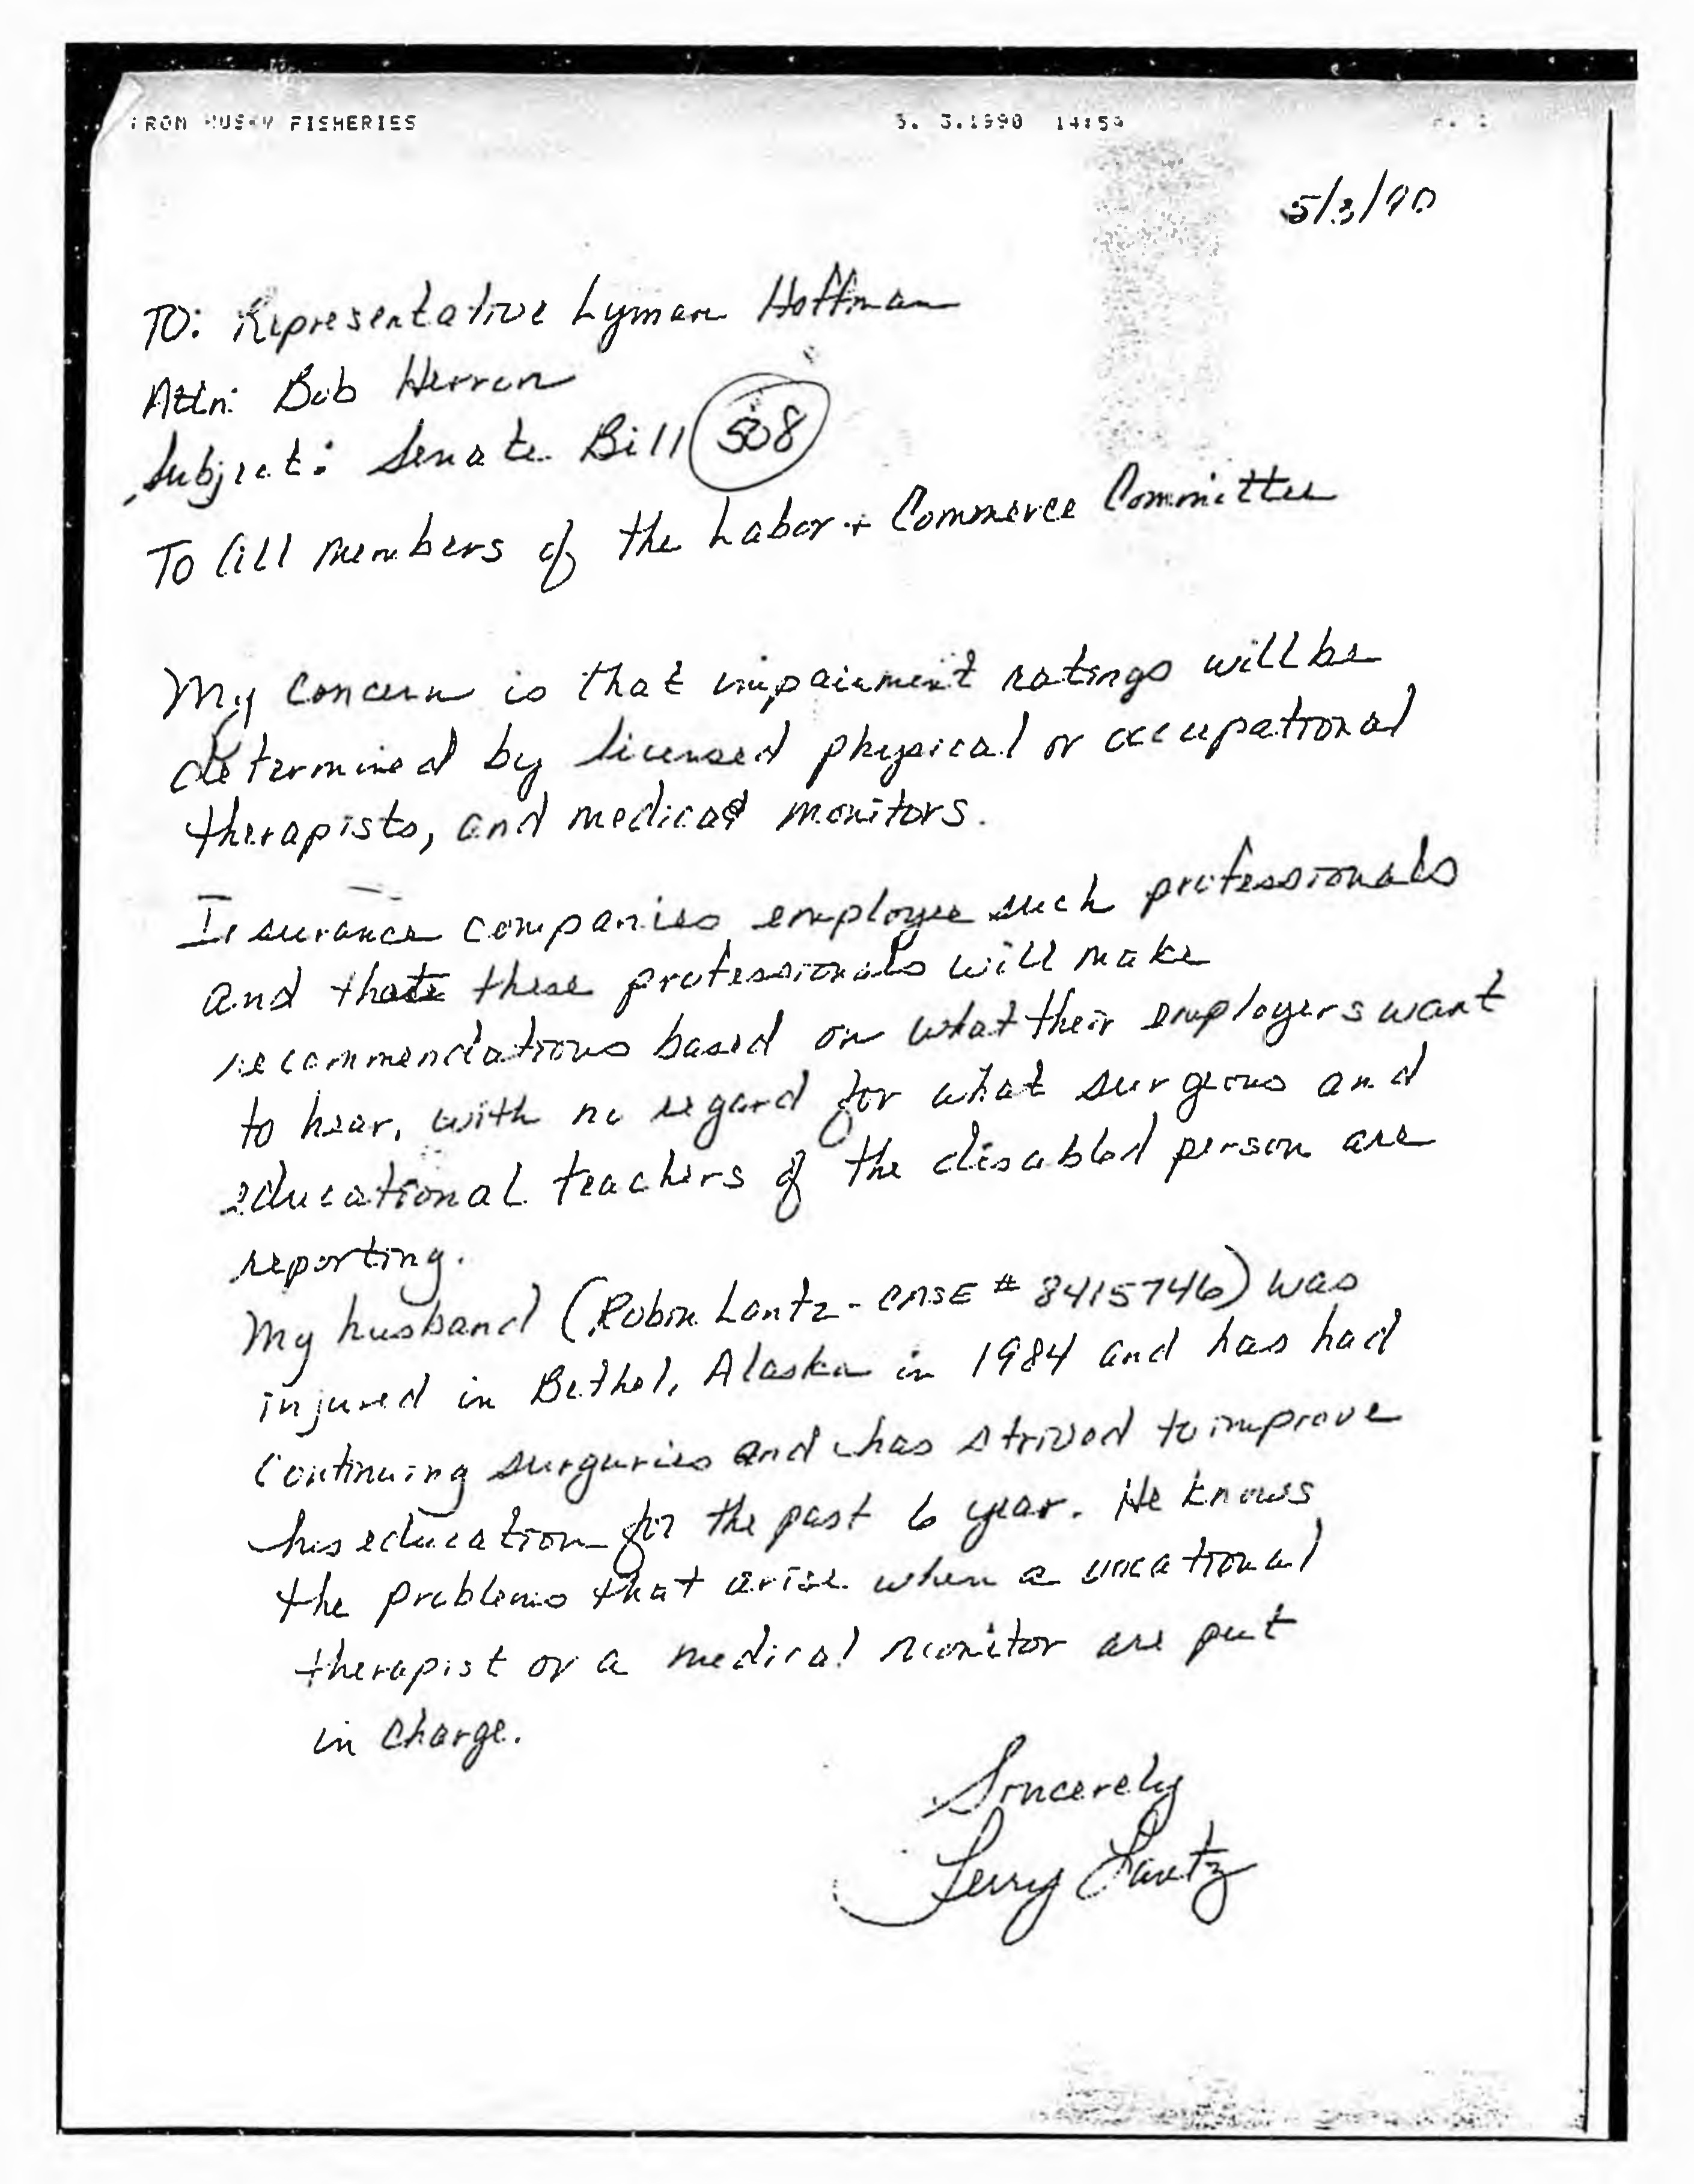 FROM HUSKY FISHERIES 5. 3.1990 14:54
5/3/90
TO: Representative Lyman Hoffman
Attn: Bob Herron
Subject: Senate Bill 508
To All members of the Labor + Commerce Committee
My concern is that impairment ratings will be
determined by licensed physical or occupational
therapists, and medical monitors.
Insurance companies employee such professionals
and that these professionals will make
recommendations based on what their employers want
to hear, with no regard for what surgeons and
educational teachers of the disabled person are
reporting.
My husband (Robin Lantz - CASE # 8415746) was
injured in Bethel, Alaska in 1984 and has had
continuing surguries and has strived to improve
his education for the past 6 year. He knows
the problems that arise when a vocational
therapist or a medical monitor are put
in charge.
Sincerely
Terry Lantz